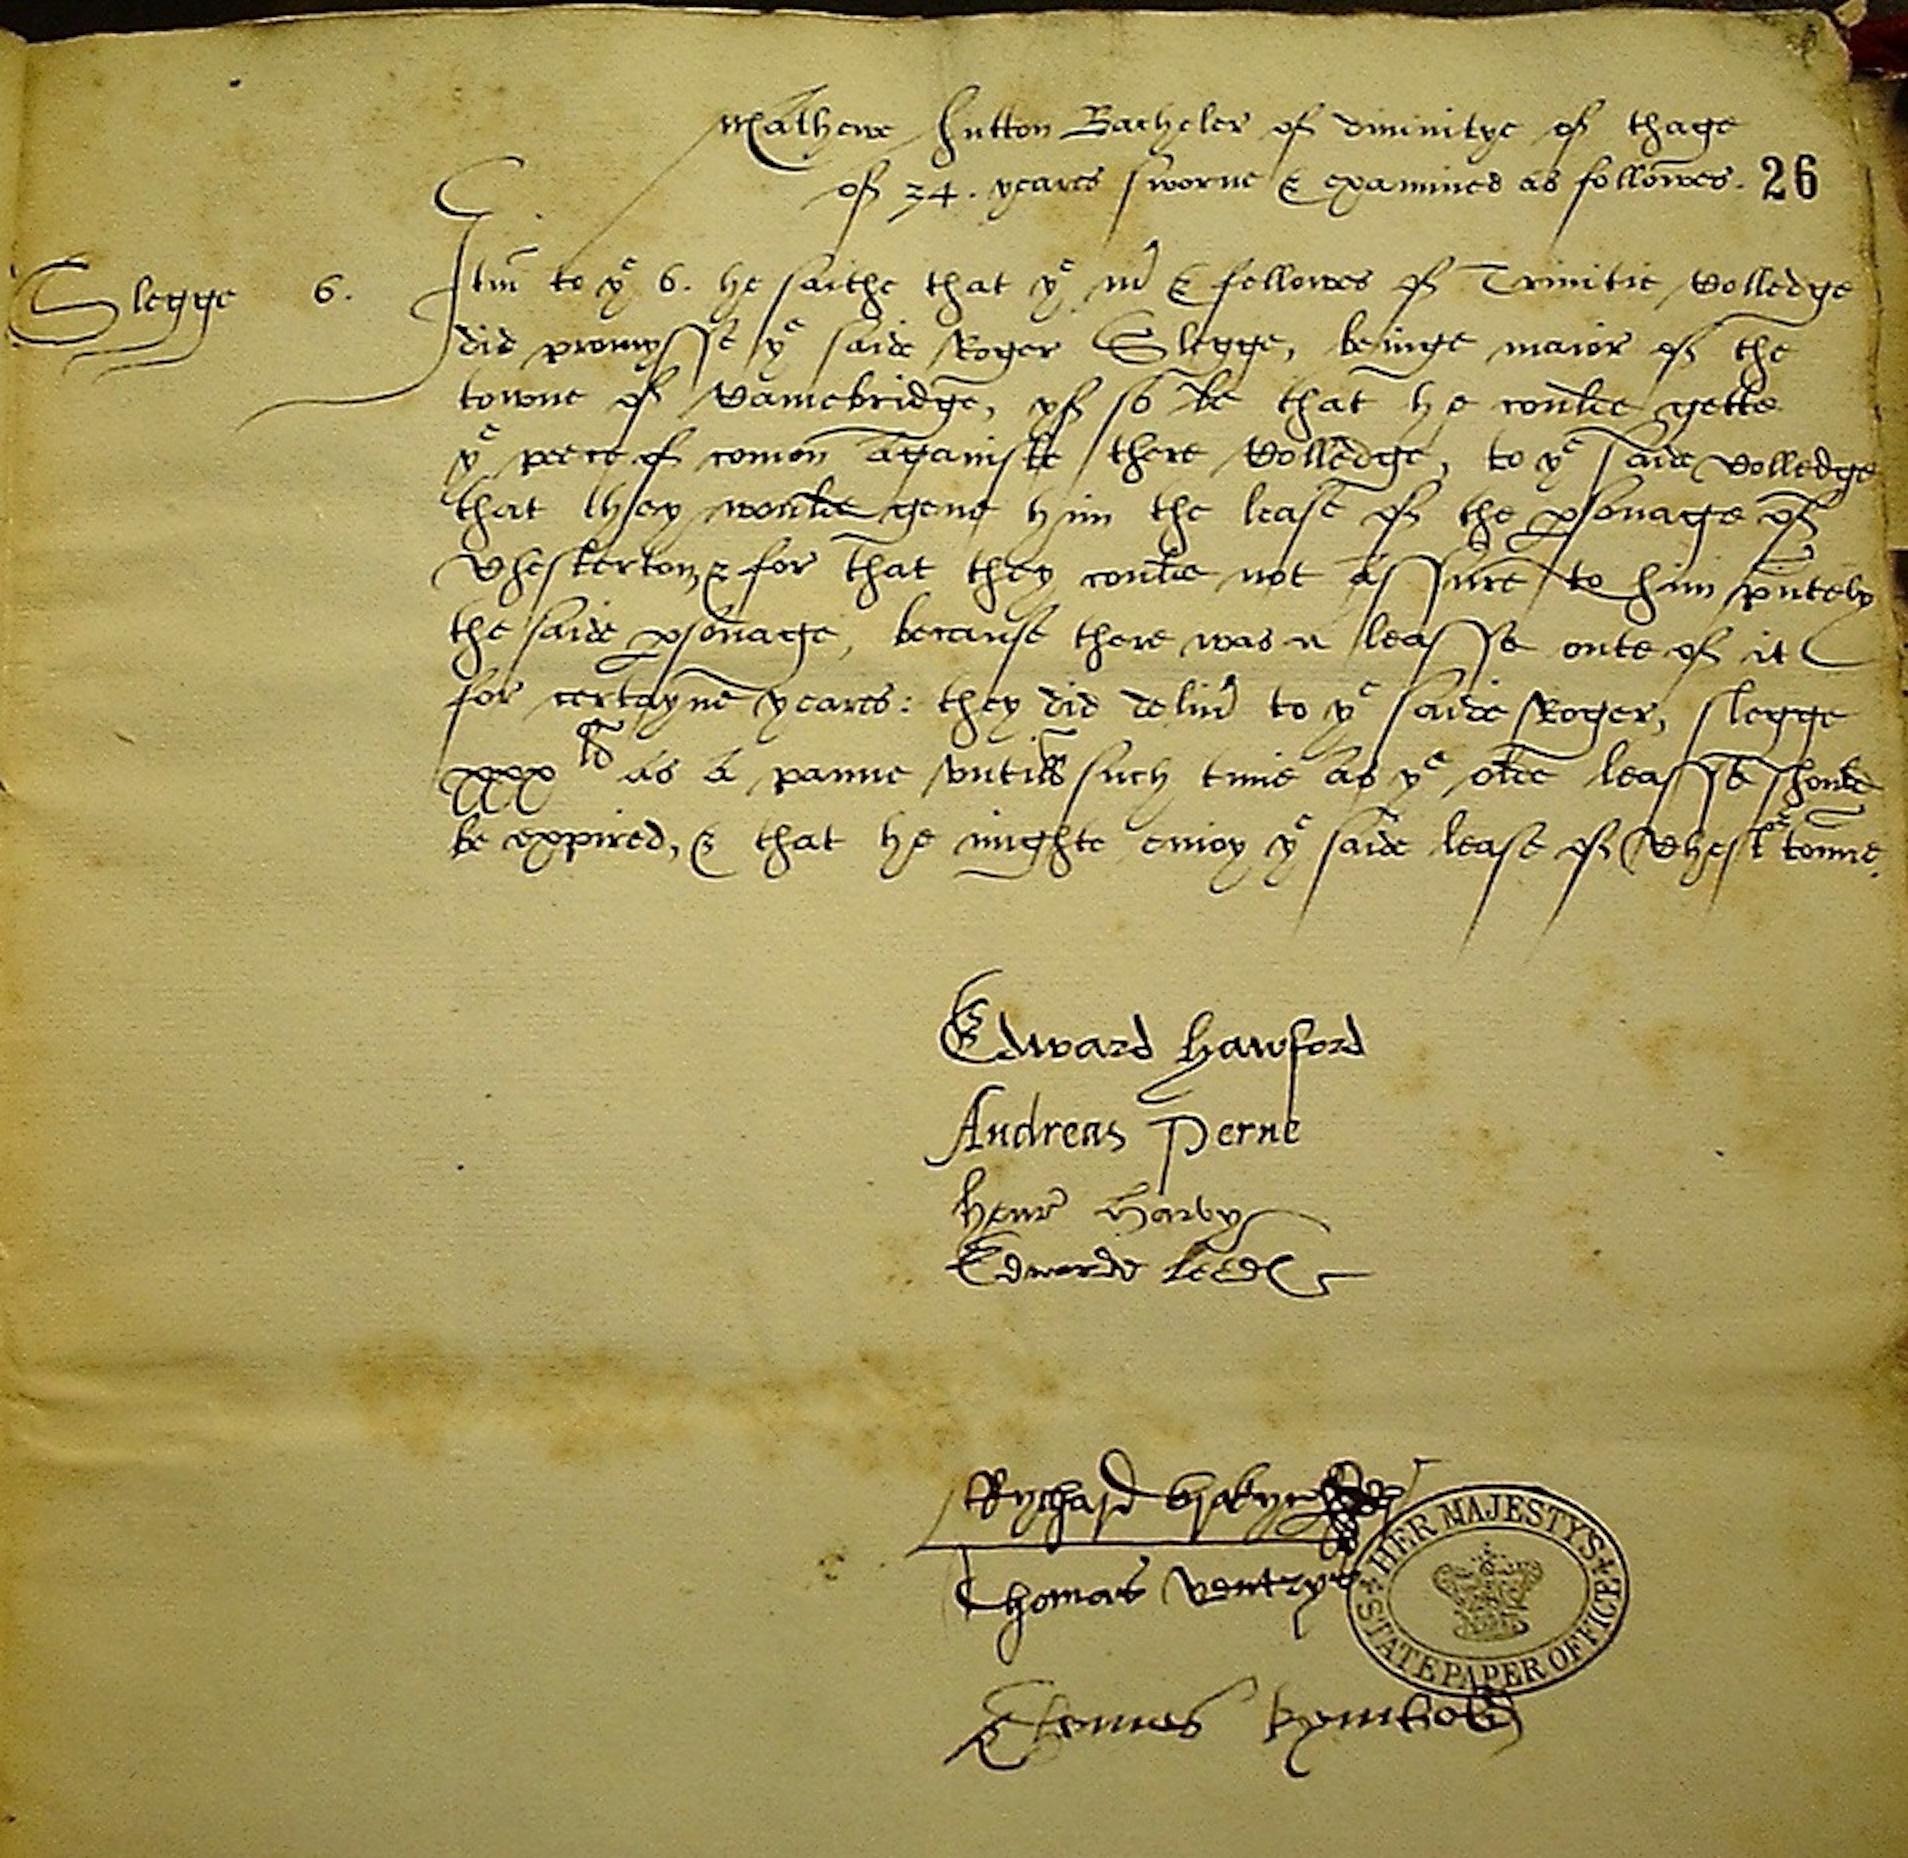 Mathewe Hutton Bacheler of diuinitye of thage
of 34. yeares sworne & examined as followes. 26
Slegge 6. Itm to ye 6. he saithe that ye mr & fellowes of Trinitie Colledge
did promysse ye saide Roger Slegge, beinge maior of the
towne of Camebridge, yf so be that he coulde gette
ye peece of comon againste there Colledge, to ye saide Colledge
that they woulde geue him the lease of the psonage of
Chesterton, & for that they coulde not assure to him pntely
the saide psonage, because there was a leasse oute of it
for certayne yeares: they did deliur to ye saide Roger, slegge
xxx ld as a pawne vntill such time as ye olde leasse shoulde
be expired, & that he mighte enioy ye saide lease of Chestertonne.
Edward Hawford
Andreas Perne
Henr Harvy
Edwarde Leed
Rychard
Thomas Ventrys
Thomas
HER MAJESTYS STATE PAPER OFFICE